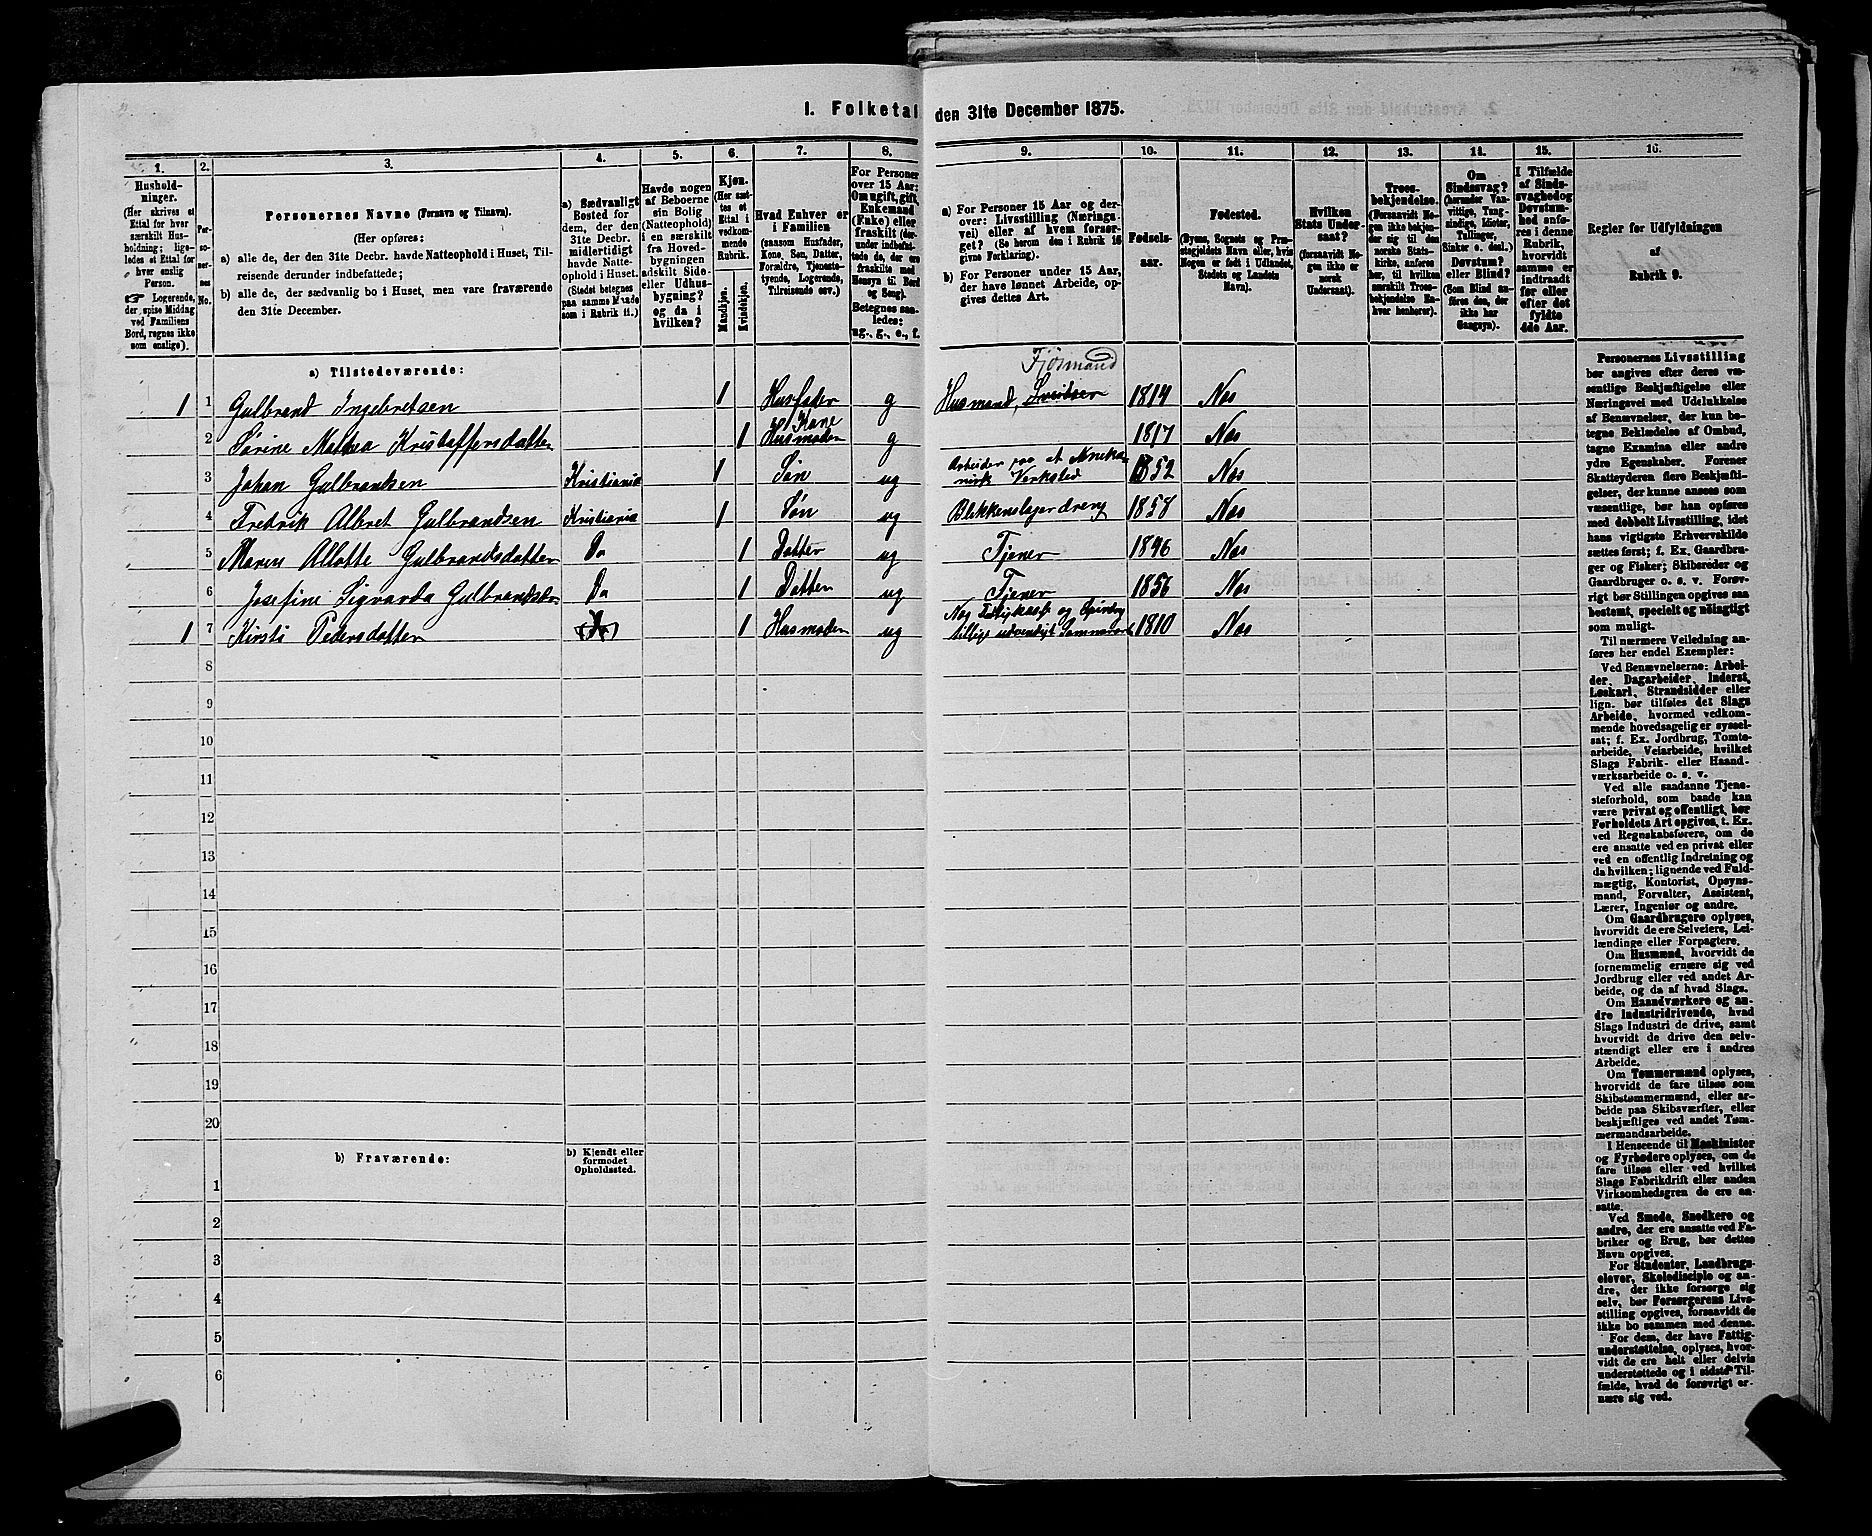 1. Folketal den 31te December 1875.
1. 2. 3. 4. 5. 6. 7. 8. 9. 10. 11. 12. 13. 14. 15. 16.
Hushold-
ninger.
(Her skrives et
Ettal for hver
særskilt Hus-
holdning; lige-
ledes et Ettal for
hver enslig
Person.
☞ Logerende,
der spise Middag
ved Familiens
Bord, regnes ikke
som enslige).
Per-
so-
ner-
nes
No.
Personernes Navne (Fornavn og Tilnavn).
(Her opføres:
a) alle de, der den 31te Decbr. havde Natteophold i Huset, Til-
reisende derunder indbefattede;
b) alle de, der sædvanlig bo i Huset, men vare fraværende
den 31te December.
a) Sædvanligt
Bosted for
dem, der den
31te Decbr.
midlertidigt
havde Natte-
ophold i Huset.
(Stedet betegnes
paa samme Maade
som i Rubrik 11.)
Havde nogen
af Beboerne
sin Bolig
(Natteophold)
i en særskilt
fra Hoved-
bygningen
adskilt Side-
eller Udhus-
bygning?
og da i
hvilken?
Kjøn.
(Her sæt-
tes et
Ettal i
vedkom-
mende
Rubrik.
Mandkjøn.
Kvindekjøn.
Hvad Enhver er
i Familien
(saasom Husfader,
Kone, Søn, Datter,
Forældre, Tjeneste-
tyende, Logerende,
Tilreisende osv.)
For Personer
over 15 Aar:
Om ugift, gift,
Enkemand
(Enke) eller
fraskilt (der-
under indbefat-
tede de, der ere
fraskilte med
Hensyn til Bord
og Seng).
Betegnes saa-
ledes:
ug., g., e., f.
a) For Personer 15 Aar og der-
over: Livsstilling (Nærings-
vei) eller af hvem forsør-
get? (Se herom den i Rubrik 16
givne Forklaring).
b) For Personer under 15 Aar,
der have lønnet Arbeide, op-
gives dettes Art.
Fødsels-
aar.
Fødested.
(Byens, Sognets og Præ-
stegjeldets Navn eller, hvis
Nogen er født i Udlandet,
Stedets og Landets
Navn).
Hvilken
Stats Under-
saat?
(forsaavidt No-
gen ikke er
norsk
Undersaat).
Troes-
bekjendelse.
(Forsaavidt No-
gen ikke bekjen-
der sig til den
norske Stats-
kirke, anføres
her, til hvilken
særskilt Troes-
bekjendelse En-
hver henhører).
Om
Sindssvag?
(herunder Van-
vittige, Tung-
sindige, Idioter,
Tullinger,
Sinker o. desl.)
Døvstum?
eller Blind?
(Som Blind an-
føres den, der
ikke har
Gangsyn).
I Tilfælde
af Sinds-
svaghed og
Døvstum-
hed anfø-
res i denne
Rubrik,
hvorvidt
samme er
indtraadt
før eller
efter det
fyldte
4de Aar.
Regler for Udfyldningen
af
Rubrik 9.
a) Tilstedeværende:
Fjøsmand
1 1 Gulbrand Ingebretsen 1 Husfader g Husmand, 1814 Nes
Kone
2 Sørine Mathea Kristoffersdatter 1 Husmoder g 1817 Nes
3 Johan Gulbrandsen Kristiania 1 Søn ug Arbeider paa et Meka-
nisk Verksted 1852 Nes
4 Fredrik Albret Gulbrandsen Kristiania 1 Søn ug Blikkenslagerdreng 1858 Nes
5 Maren Allotte Gulbrandsdatter Do 1 Datter ug Tjener 1846 Nes
6 Josefine Sigvarda Gulbrandsdr Do 1 Datter ug Tjener 1856 Nes
1 7 Kirsti Pedersdatter 1 Husmoder ug Nes Fattigkasse og
tillige 1810 Nes
8
9
10
11
12
13
14
15
16
17
18
19
20
b) Fraværende:
b) Kjendt eller
formodet
Opholdssted.
1
2
3
4
5
6
Personernes Livsstilling
bør angives efter deres væ-
sentlige Beskjæftigelse eller
Næringsvei med Udelukkelse
af Benævnelser, der kun be-
tegne Beklædelse af Ombud,
tagne Examina eller andre
ydre Egenskaber. Forener
Skatteyderen flere Beskjæfti-
gelser, der kunne ansees som
væsentlige, bør han opføres
med dobbelt Livsstilling, idet
hans vigtigste Erhvervskilde
sættes først; f. Ex. Gaardbru-
ger og Fisker; Skibsreder og
Gaardbruger o. s. v. Forøv-
rigt bør Stillingen opgives saa
bestemt, specielt og nøiagtigt
som muligt.
Til nærmere Veiledning an-
føres her endel Exempler:
Ved Benævnelserne: Arbei-
der, Dagarbeider, Inderst,
Løskarl, Strandsidder eller
lign. bør tilføies det Slags
Arbeide, hvormed vedkom-
mende hovedsagelig er syssel-
sat; f. Ex. Jordbrug, Tomte-
arbeide, Veiarbeide, hvilket
Slags Fabrik- eller Haand-
værksarbeide o. s. v.
Ved alle saadanne Tjene-
steforhold, som baade kan
være privat og offentligt, bør
Forholdets Art opgives, t. Ex.
ved Regnskabsførere, om de
ere ansatte ved en privat eller
ved en offentlig Indretning og
da hvilken; lignende ved Fuld-
mægtig, Kontorist, Opsyns-
mand, Forvalter, Assistent,
Lærer, Ingeniør og andre.
Om Gaardbrugere oplyses,
hvorvidt de ere Selveiere, Lei-
lændinge eller Forpagtere.
Om Husmænd, hvorvidt de
fornemmelig ernære sig ved
Jordbrug eller ved andet Ar-
beide, og da af hvad Slags.
Om Haandværkere og an-
dre Industridrivende, hvad
Slags Industri de drive, samt
hvorvidt de drive den selv-
stændigt eller ere i andres
Arbeide.
Om Tømmermænd oplyses,
hvorvidt de fare tilsøs som
Skibstømmermænd, eller ar-
beide paa Skibsværfter, eller
beskjæftiges ved andet Tøm-
mermandsarbeide.
I Henseende til Maskinister
og Fyrbødere oplyses, om de
fare tilsøs eller ved hvilket
Slags Fabrikdrift eller anden
Virksomhedsgren de ere an-
satte.
Ved Smede, Snedkere og
andre, der ere ansatte ved Fa-
briker og Brug, bør dettes
Navn opgives.
For Studenter, Landbrugs-
elever, Skoledisciple og an-
dre, der ikke forsørge sig
selv, bør Forsørgerens Livs-
stilling opgives, forsaavidt de
ikke bo sammen med denne.
For dem, der have Fattig-
understøttelse, oplyses, hvor-
vidt de ere helt eller delvis
understøttede og i sidste Til-
fælde, hvad de forøvrigt er-
nære sig ved.